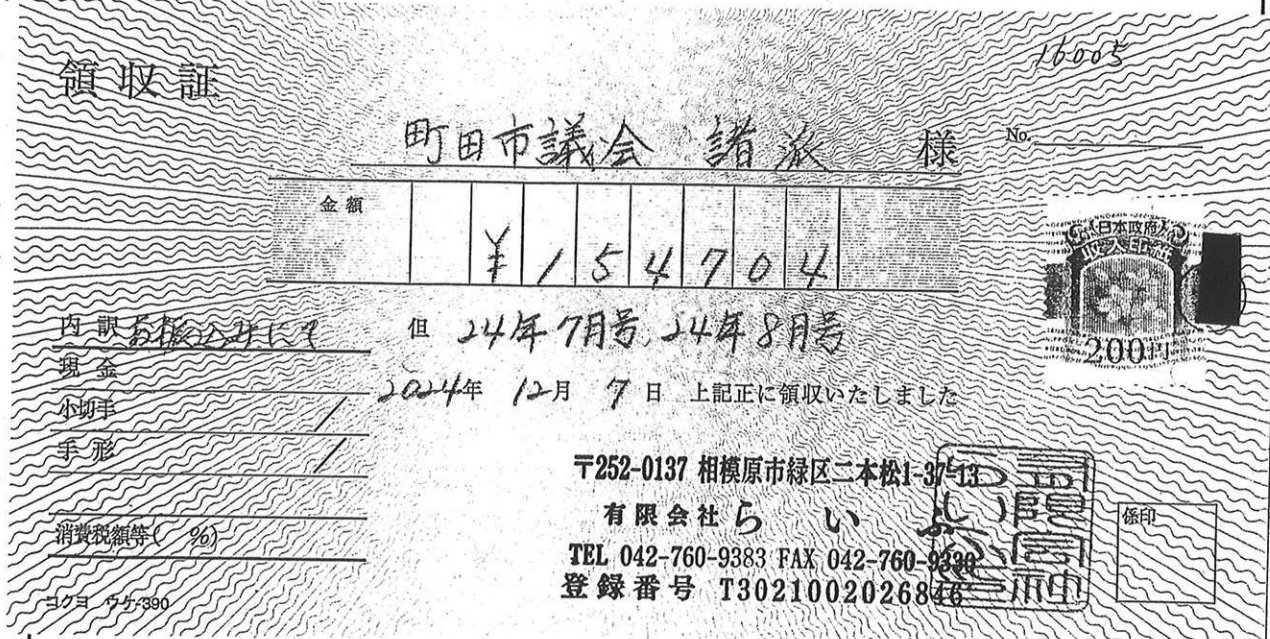 16005
領収証
町田市議会 諸派 様 No.
金額 ¥154704
日本政府
収入印紙
200円
内訳 お振込みにて
但 24年7月号、24年8月号
現金
2024年 12月 7日 上記正に領収いたしました
小切手
手形
〒252-0137 相模原市緑区二本松1-37-13
有限会社 らいふ
TEL 042-760-9383 FAX 042-760-9330
登録番号 T3021002026846
消費税額等( %)
係印
コクヨ ウケ-390